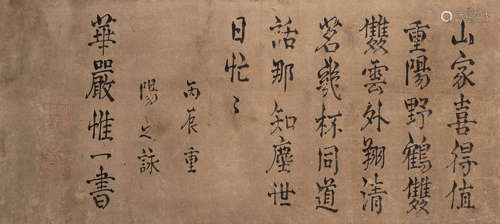 山家喜得值
重陽野鶴雙
雙雲外翔清
茗幾杯同道
話那知塵世
日忙〻
丙辰重
陽之詠
華嚴惟一書